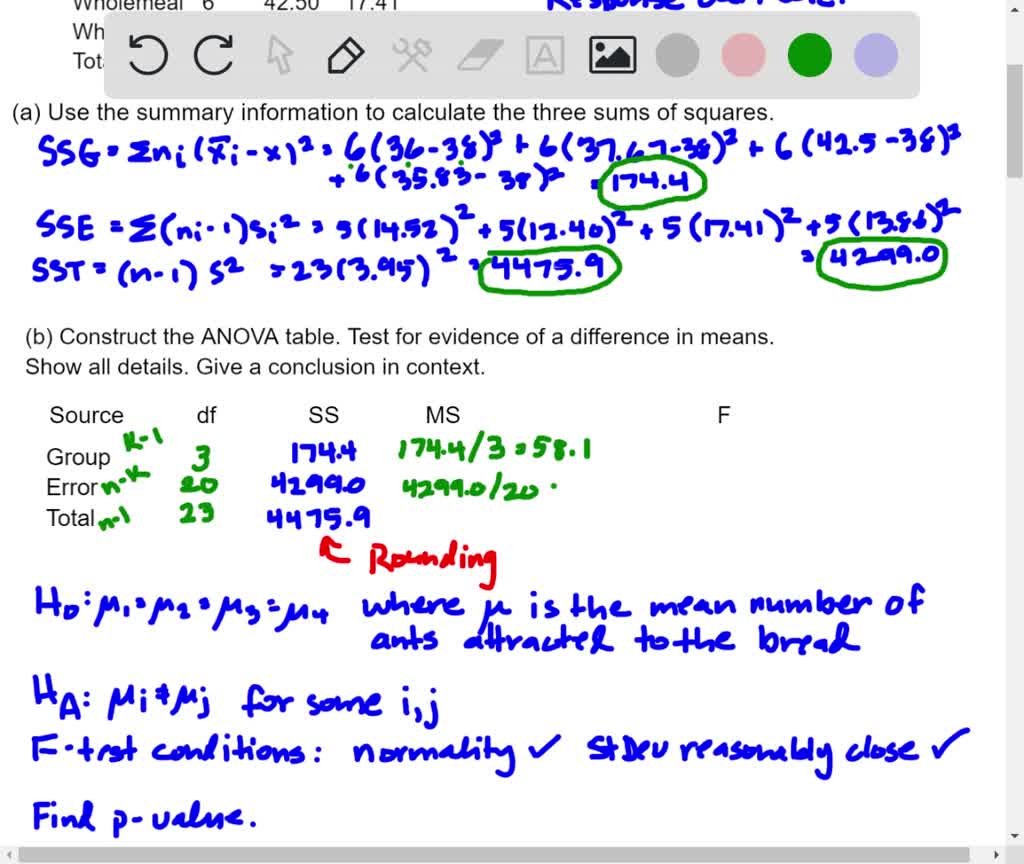 Wholemeal 6 42.50 17.41
Wh
Tot
A
(a) Use the summary information to calculate the three sums of squares.
SSG = Σni(x̄i-x)² = 6(36-38)² + 6(37.67-38)² + 6(42.5-38)²
+ 6(35.83-38)² = 174.4
SSE = Σ(ni-1)si² = 5(14.52)² + 5(12.40)² + 5(17.41)² + 5(13.86)²
= 4299.0
SST = (n-1) s² = 23(3.95)² = 4475.9
(b) Construct the ANOVA table. Test for evidence of a difference in means.
Show all details. Give a conclusion in context.
Source df SS MS F
Group K-1 3 174.4 174.4/3 = 58.1
Error n-K 20 4299.0 4299.0/20
Total n-1 23 4475.9
Rounding
H₀: μ₁=μ₂=μ₃=μ₄ where μ is the mean number of
ants attracted to the bread
HA: μi≠μj for some i,j
F-test conditions: normality ✓ St Dev reasonably close ✓
Find p-value.